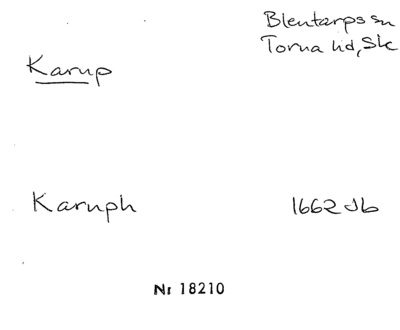 Blentarps sn
Torna hd, Sk
Karup
Karuph 1662 Jb
Nr 18210